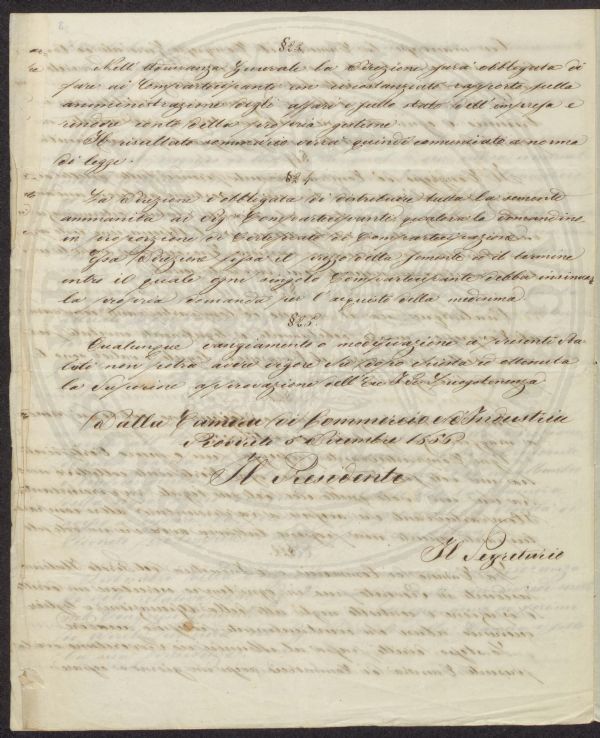 § 23.
Nell' adunanza generale la Direzione sarà obbligata di
fare ai Compartecipanti un circostanziato rapporto sulla
amministrazione degli affari e sullo stato dell' impresa e
rendere conto della propria gestione.
Il risultato sommario verrà quindi comunicato a norma
di legge.
§ 24.
La Direzione è obbligata di distribuire tutta la semente
ammanita ai Sigri Compartecipanti qualora la domandino
in proporzione di Certificato di Compartecipazione.
Essa Direzione fissa il prezzo della semente ed il termine
entro il quale ogni singolo Compartecipante debba insinuare
la propria domanda per l' acquisto della medesima.
§ 25.
Qualunque cangiamento o modificazione ai presenti Sta-
tuti non potrà avere vigore se dopo chiesta ed ottenuta
la Superiore approvazione dell' Ecc. I. R. Luogotenenza.
Dalla Camera di Commercio ed Industria
Rovereto 5 Dicembre 1856
Il Presidente
Il Segretario